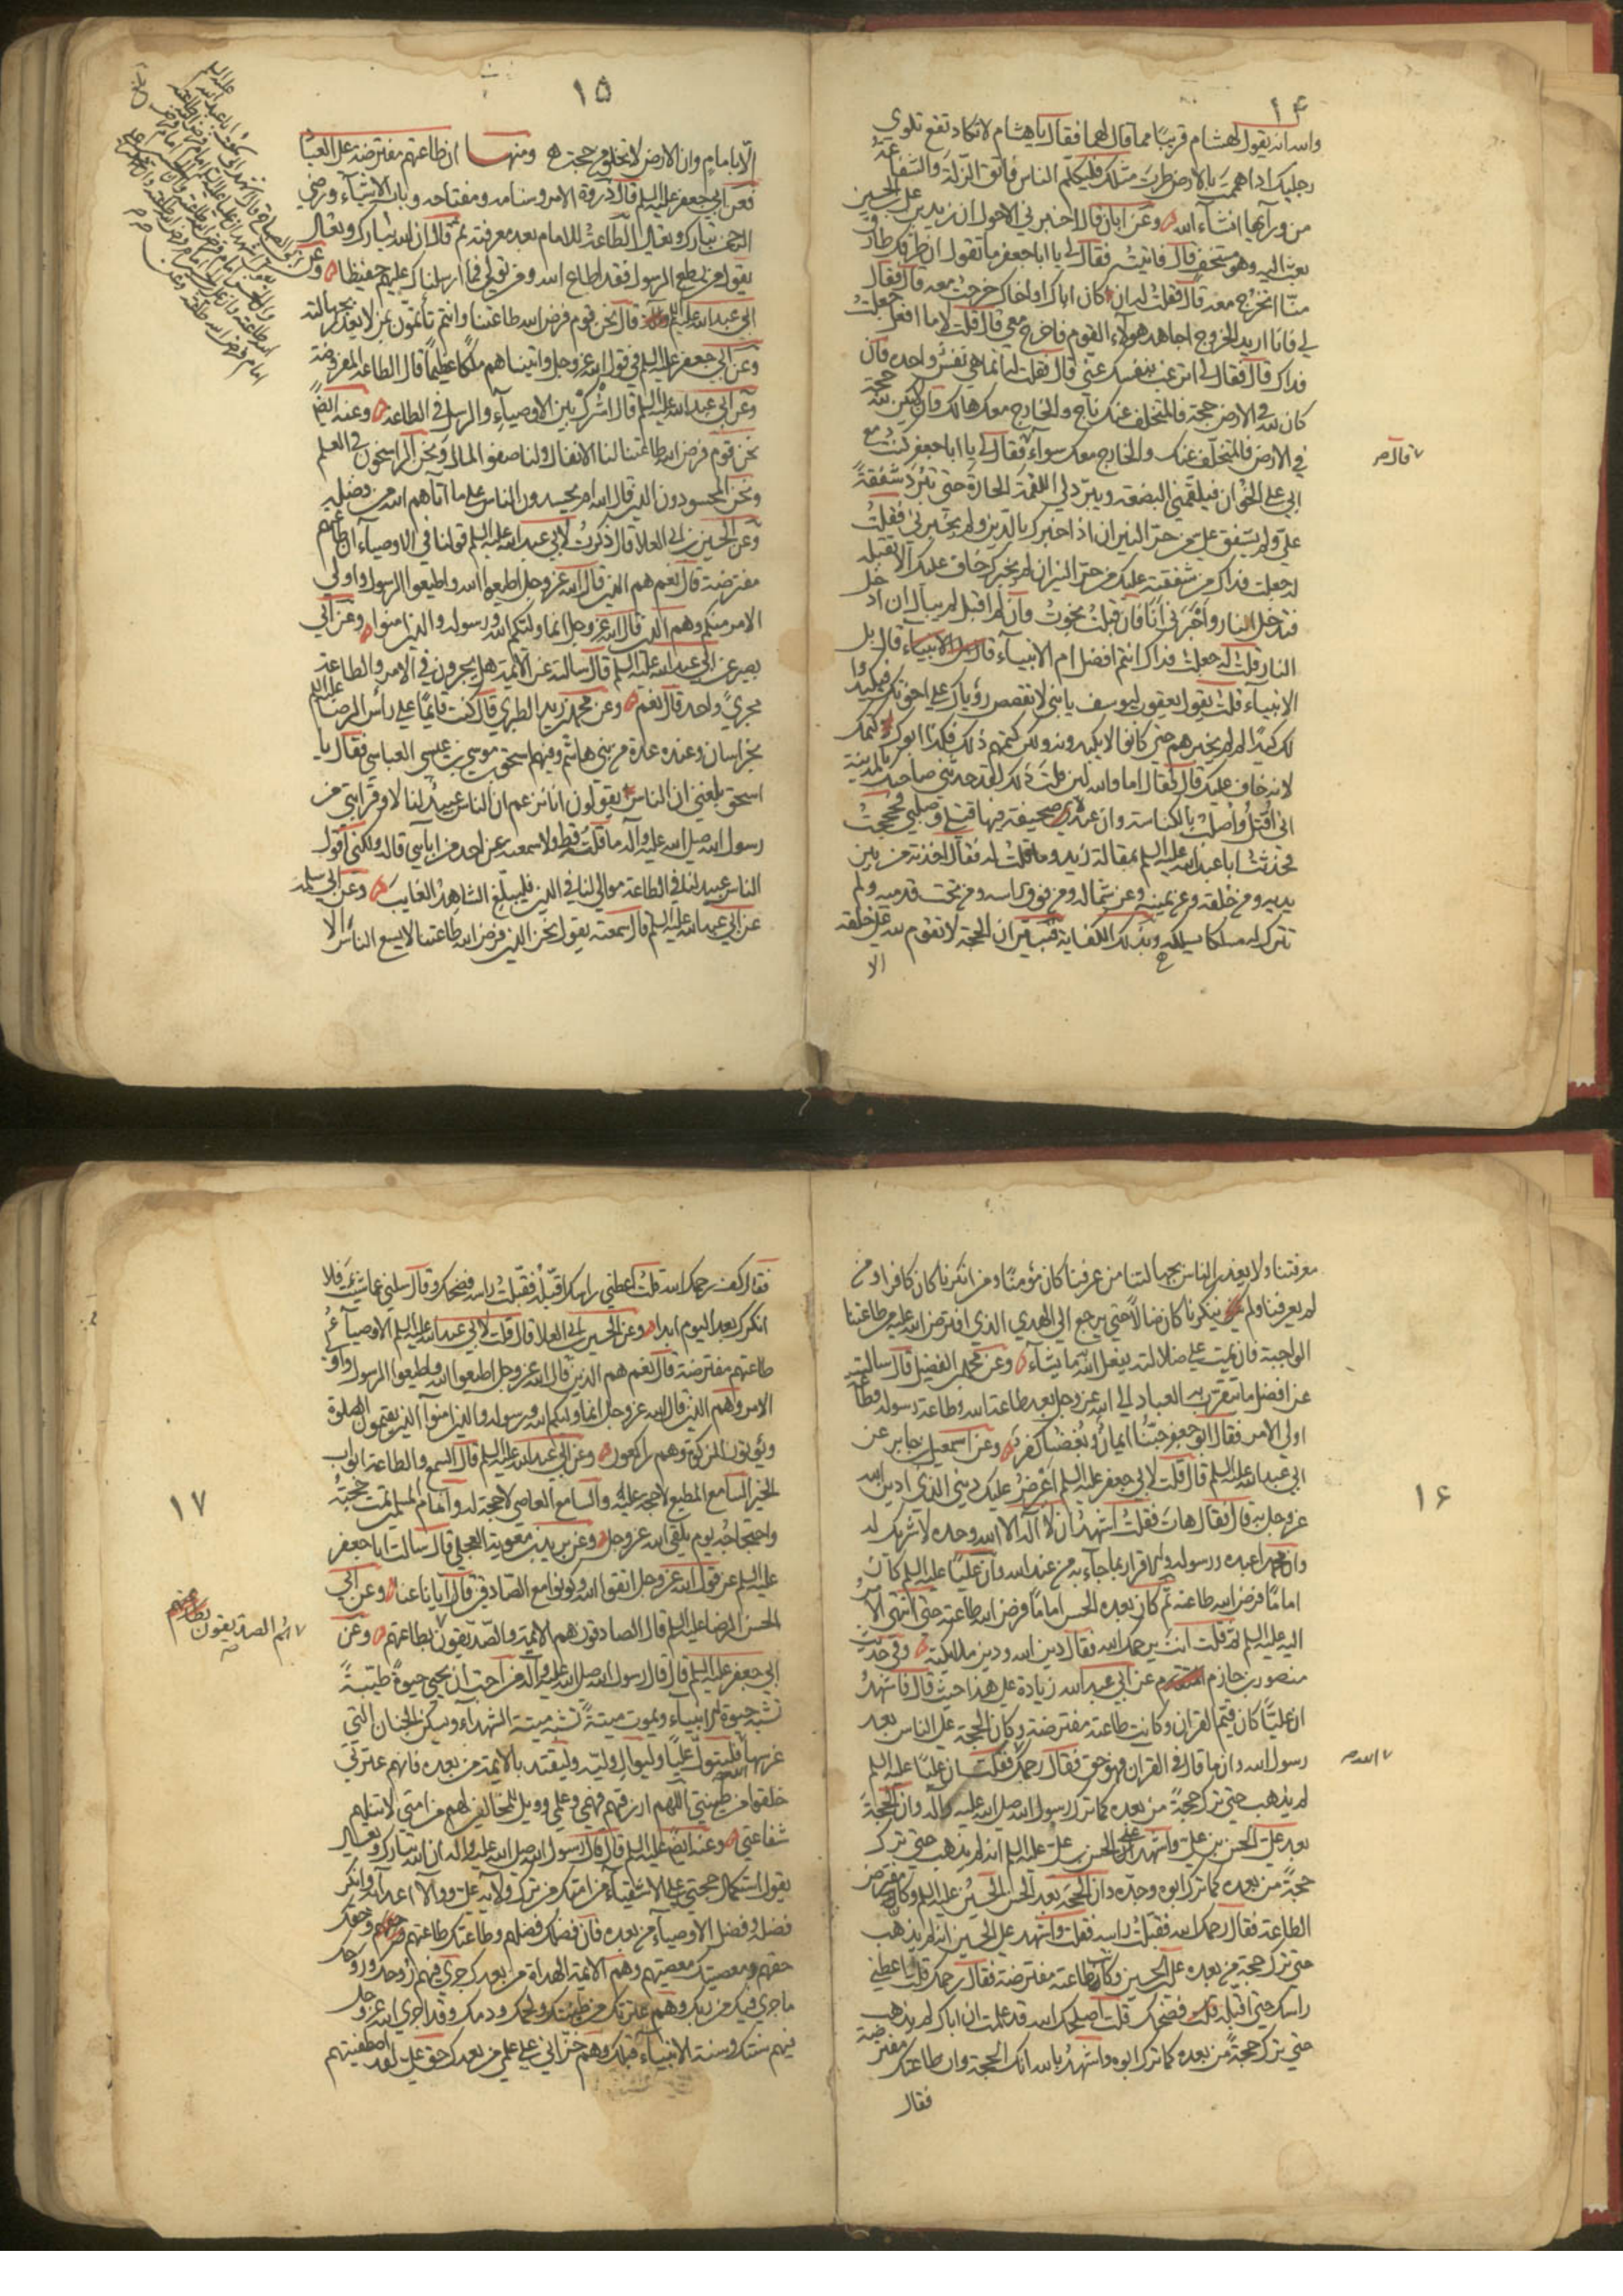 ١٤
واسه انه يقول لهشام قريبًا مما قال لهما فقال يا هشام لا تكاد تقع تلوي
رجليك اذا هممت بالارض طرت مثلك فليكلم الناس فاتق الزلة والشفاعة
من ورآيها انشآء الله وعن ابان قال اخبرني الاحول ان زيد بن علي بن الحسين
بعث اليه وهو مستخف قال فاتيته فقال لي يا ابا جعفر ما تقول ان طرقك طارق
منا اتخرج معه قال فقلت له ان كان اباك او اخاك خرجت معه قال فقال
لي فانا اريد الخروج اجاهد هولآء القوم فاخرج معي قال قلت لا ما افعل جعلت
فداك قال فقال لي اترغب بنفسك عني قال فقلت له انما هي نفس واحدة فان
كان لله في الارض حجة فالمتخلف عنك ناج والخارج معك هالك وان لا يكن لله حجة
في الارض فالمتخلف عنك والخارج معك سوآء فقال لي يا ابا جعفر كنت مع
ابي على الخوان فيلقمني البضعة ويبرد لي اللقمة الحارة حتى تبرد شفقةً
علي ولم يشفق علي من حر النيران اذا اخبرك بالدين ولم يخبرني فقلت
له جعلت فداك من شفقته عليك من حر النيران لم يخبرك خاف عليك الا تقبله
فتدخل النار واخبرني انا فان قبلت نجوت وان لم اقبل لم يبال ان ادخل
النار قلت له جعلت فداك انتم افضل ام الانبيآء قال بل الانبياء قال بل
الانبيآء قلت يقول يعقوب ليوسف يا بني لا تقصص رؤياك على اخوتك فيكيدوا
لك كيدًا لم لم يخبرهم حتى كانوا لا يكيدونه ولكن كتمهم ذلك فكذا ابوك كتمك
لانه خاف عليك قال فقال اما والله لئن قلت ذلك لقد حدثني صاحبك بالمدينة
اني اقتل واصلب بالكناسة وان عنده لصحيفة فيها قتلي وصلبي فحججت
فحدثت ابا عبد الله عليه السلم بمقالة زيد وما قلت له فقال اخذته من بين
يديه ومن خلفه وعن يمينه وعن شماله ومن فوق راسه ومن تحت قدميه ولم
تترك له مسلكا يسلكه وبذلك الكفاية فتبين ان الحجة لا تقوم لله على خلقه
الا
قال صح
١٥
الّا بامامٍ وان الارض لا تخلو من حجة ومنها ان طاعتهم مفترضة على العباد
فعن ابي جعفر عليه السلم قال ذروة الامر وسنامه ومفتاحه وباب الاشيآء ورضي
الرحمن تبارك وتعالى الطاعة للامام بعد معرفته ثم قال ان الله تبارك وتعالى
يقول من يطع الرسول فقد اطاع الله ومن تولى فما ارسلناك عليهم حفيظا وعن
ابي عبد الله عليه السلم قال نحن قوم فرض الله طاعتنا وانتم تأتمون بمن لا يعذر الناس بجهالته
وعن ابي جعفر عليه السلم في قول الله عز وجل واتيناهم ملكًا عظيمًا قال الطاعة المفروضة
وعن ابي عبد الله عليه السلم قال اشرك بين الاوصيآء والرسل في الطاعة وعنه ايضًا
نحن قوم فرض الله طاعتنا لنا الانفال ولنا صفو المال ونحن الراسخون في العلم
ونحن المحسودون الذين قال الله ام يحسدون الناس على ما آتاهم الله من فضله
وعن الحسين بن ابي العلا قال ذكرت لابي عبد الله عليه السلم قولنا في الاوصيآء ان طاعتهم
مفترضة قال نعم هم الذين قال الله عز وجل اطيعوا الله واطيعوا الرسول واولي
الامر منكم وهم الذين قال الله عز وجل انما وليكم الله ورسوله والذين امنوا وعن ابي
بصير عن ابي عبد الله عليه السلم قال سالته عن الائمة هل يجرون في الامر والطاعة
مجرىً واحد قال نعم وعن محمد بن زيد الطبري قال كنت قايمًا على رأس الرضا عليه السلم
بخراسان وعنده عدة من بني هاشم وفيهم اسحق بن موسى بن عيسى العباسي فقال يا
اسحق بلغني ان الناس يقولون انا نزعم ان الناس عبيدٌ لنا لا وقرابتي من
رسول الله صلى الله عليه وآله ما قلته قط ولا سمعته عن احد من ابآيي قاله ولكني اقول
الناس عبيد لنا في الطاعة موالي لنا في الدين فليبلغ الشاهد الغايب وعن ابي سلمة
عن ابي عبد الله عليه السلم قال سمعته يقول نحن الذين فرض الله طاعتنا لا يسع الناس الا
معرفتنا ولا يعذر الناس بجهالتنا من عرفنا كان مؤمنًا ومن انكرنا كان كافرا ومن
لم يعرفنا ولم ينكرنا كان ضالًا حتى يرجع الي الهدي الذي افترض الله عليه من طاعتنا
الواجبة فان يمت على ضلالته يفعل الله ما يشآء وعن محمد بن الفضيل قال سالته
عن افضل ما يتقرب به العباد الي الله عز وجل بعد طاعة الله وطاعة رسوله وطاعة
اولي الامر فقال ابو جعفر حبّنا ايمان وبغضنا كفر وعن اسمعيل بن جابر عن
ابي عبد الله عليه السلم قال قلت لابي جعفر عليه السلم اعرض عليك ديني الذي ادين الله
عز وجل به قال فقال هات فقلت اشهد ان لا اله الا الله وحده لا شريك له
وان محمدا عبده ورسوله والاقرار بما جآء به من عند الله وان عليًا عليه السلم كان
امامًا فرض الله طاعته ثم كان بعده الحسن امامًا فرض الله طاعته حتى انتهى الامر
اليه عليه السلم ثم قلت انت يرحمك الله فقال دين الله ودين ملائكته وفي حديث
منصور بن حازم عن ابي عبد الله زيادة على هذا حيث قال فاشهد
ان عليًا كان قيّم القران وكانت طاعته مفترضة وكان الحجة على الناس بعد
رسول الله وان ما قال في القران فهو حق فقال رحمك فقلت ان عليًا عليه السلم
لم يذهب حتى ترك حجةً من بعده كما ترك رسول الله صلى الله عليه وآله وان الحجة
بعد علي الحسن بن علي واشهد على الحسن بن علي عليه السلم انه لم يذهب حتى ترك
حجةً من بعده كما ترك ابوه وجدّه وان الحجة بعد الحسن الحسين عليه السلم وكان مفترض
الطاعة فقال رحمك الله فقبلت راسه فقلت واشهد على الحسين انه لم يذهب
حتى ترك حجة من بعده علي بن الحسين وكانت طاعته مفترضة فقال رحمك قلت اعطني
راسك حتى اقبله قلت فضحك قلت اصلحك الله قد علمت ان اباك لم يذهب
حتى ترك حجةً من بعده كما ترك ابوه واشهد بالله انك الحجة وان طاعتك مفترضة
فقال
١٦
الله صح
فقال كف رحمك الله قلت اعطني راسك اقبّله فقبلت راسه فضحك وقال سلني عما شئت فلا
انكرك بعد اليوم ابدا وعن الحسين بن ابي العلا قال قلت لابي عبد الله عليه السلم الاوصيآء
طاعتهم مفترضة قال نعم هم الذين قال الله عز وجل اطيعوا الله واطيعوا الرسول واولي
الامر وهم الذين قال الله عز وجل انما وليكم الله ورسوله والذين امنوا الذين يقيمون الصلوة
ويؤتون الزكوة وهم راكعون وعن ابي عبد الله عليه السلم قال السمع والطاعة ابواب
الخير السامع المطيع لا حجة عليه والسامع العاصي لا حجة له وامام المسلمين تمت حجته
واحتجاجه يوم يلقى الله عز وجل وعن بريد بن معوية العجلي قال سالت ابا جعفر
عليه السلم عن قول الله عز وجل اتقوا الله وكونوا مع الصادقين قال ايانا عنا وعن ابي
الحسن الرضا عليه السلم قال الصادقون هم الائمة والصدّيقون بطاعتهم وعن
ابي جعفر عليه السلم قال قال رسول الله صلى الله عليه وآله من احب ان يحيى حيوةً طيبةً
تشبه حيوة الانبيآء ويموت ميتةً تشبه ميتة الشهدآء ويسكن الجنان التي
غرسها الله فليتولّ عليًا وليوال وليّه وليقتد بالايمة من بعده فانهم عترتي
خلقوا من طينتي اللهم ارزقهم فهمي وعلمي وويل للمخالفين لهم من امتي لا تنلهم
شفاعتي وعنه ايضًا عليه السلم قال قال رسول الله صلى الله عليه وآله ان الله تبارك وتعالى
يقول استكمال حجتي على الاشقيآء من امتك من ترك ولاية علي ووالا اعدآه وانكر
فضله وفضل الاوصيآء من بعده فان فضلك فضلهم وطاعتك طاعتهم وحقك
حقهم ومعصيتك معصيتهم وهم الائمة الهداة من بعدك جرى فيهم روحك وروحك
ما جرى فيك من ربك وهم عترتك من طينتك ولحمك ودمك وقد اجرى الله عز وجل
فيهم سنتك وسنة الانبيآء قبلك وهم خزّاني على علمي من بعدك حق علي لقد اصطفيتهم
١٧
الصديقون